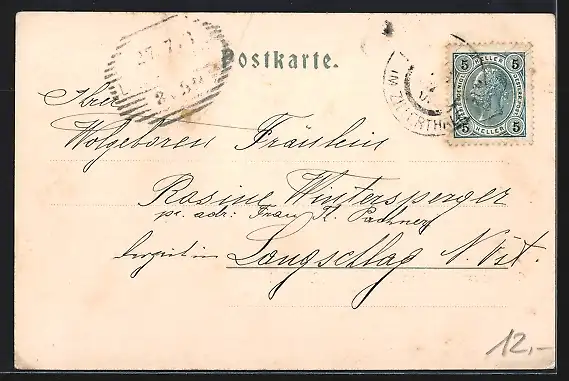 Postkarte.
5 HELLER 5
5 HELLER 5
IM ZILLERTHAL
Ihrer
Wolgeboren Fräulein
Rosine Wintersperger
pr. adr: Frau R. Pachner
derzeit in Langschlag N. Öst.
12,-